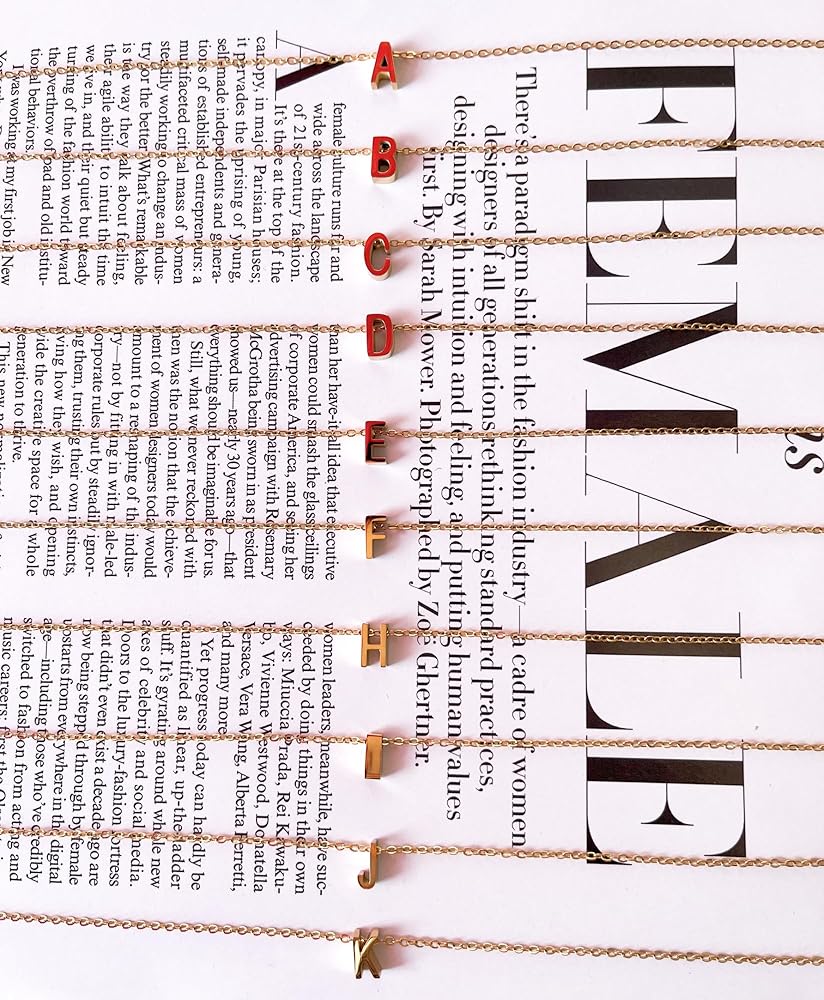 es
FEMALE
There's a paradigm shift in the fashion industry—a cadre of women
designers of all generations rethinking standard practices,
designing with intuition and feeling, and putting human values
first. By Sarah Mower. Photographed by Zoë Ghertner.
A
B
C
D
E
F
H
I
J
K
A
female culture runs far and
wide across the landscape
of 21st-century fashion.
It's there at the top of the
canopy, in major Parisian houses;
it pervades the uprising of young,
self-made independents and genera-
tions of established entrepreneurs: a
multifaceted critical mass of women
steadily working to change an indus-
try for the better. What's remarkable
is the way they talk about feeling,
their agile ability to intuit the time
we live in, and their quiet but steady
turning of the fashion world toward
the overthrow of bad and old institu-
tional behaviors.
I was working at my first job in New
than her have-it-all idea that executive
women could smash the glass ceilings
of corporate America, and seeing her
advertising campaign with Rosemary
McGrotha being sworn in as president
showed us—nearly 30 years ago—that
everything should be imaginable for us.
Still, what we never reckoned with
then was the notion that the achieve-
ment of women designers today would
amount to a reshaping of the indus-
try—not by fitting in with male-led
corporate rules but by steadily ignor-
ing them, trusting their own instincts,
living how they wish, and opening
wide the creative space for a whole
generation to thrive.
This new
women leaders, meanwhile, have suc-
ceeded by doing things in their own
ways: Miuccia Prada, Rei Kawaku-
bo, Vivienne Westwood, Donatella
Versace, Vera Wang, Alberta Ferretti,
and many more.
Yet progress today can hardly be
quantified as linear, up-the-ladder
stuff. It's gyrating around whole new
axes of celebrity and social media.
Doors to the luxury-fashion fortress
that didn't even exist a decade ago are
now being stepped through by female
upstarts from everywhere in the digital
age—including those who've credibly
switched to fashion from acting and
music careers: first the